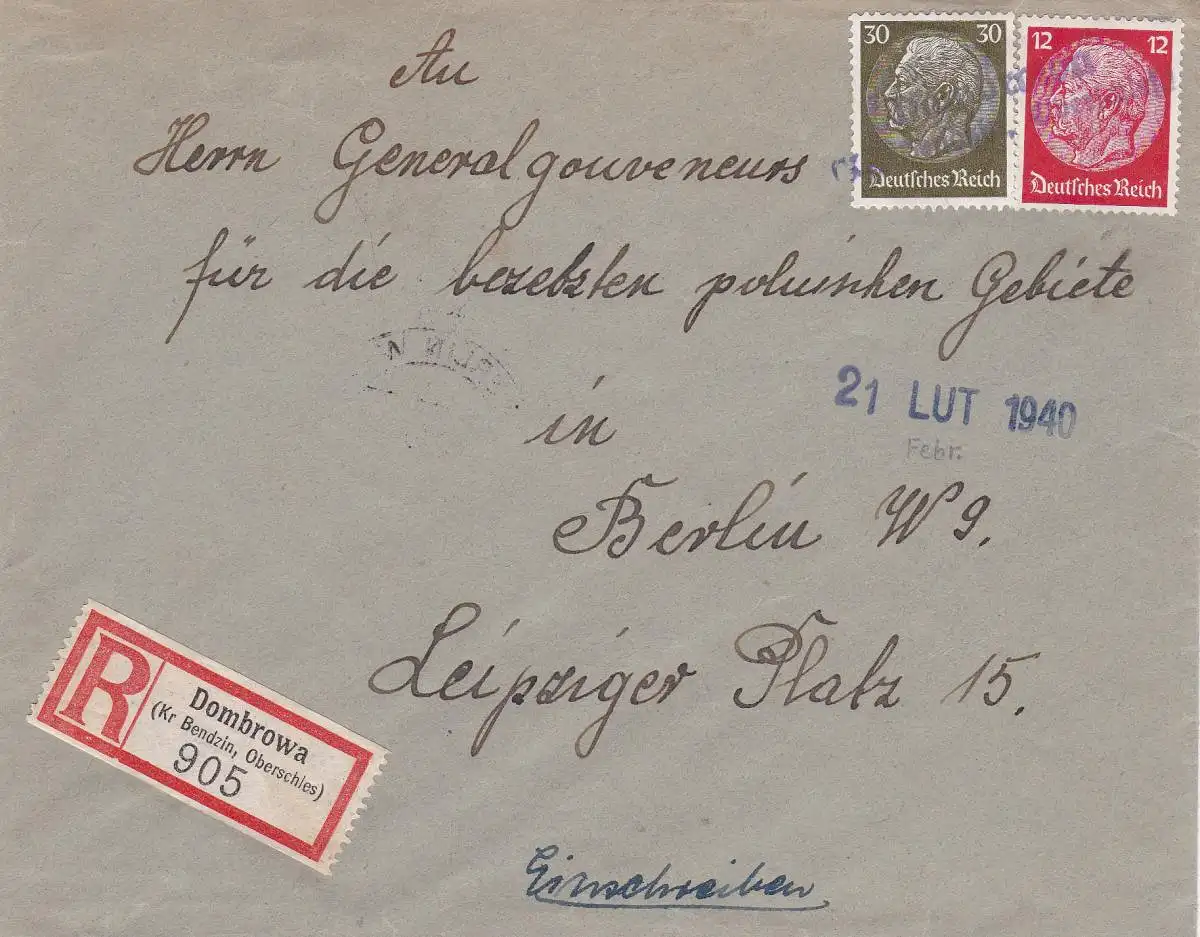 An
Herrn Generalgouveneurs
für die besetzten polnischen Gebiete
in
Berlin W 9.
Leipziger Platz 15.
Einschreiben
30 30
Deutsches Reich
12 12
Deutsches Reich
21 LUT 1940
Febr.
R
Dombrowa
(Kr Bendzin, Oberschles)
905